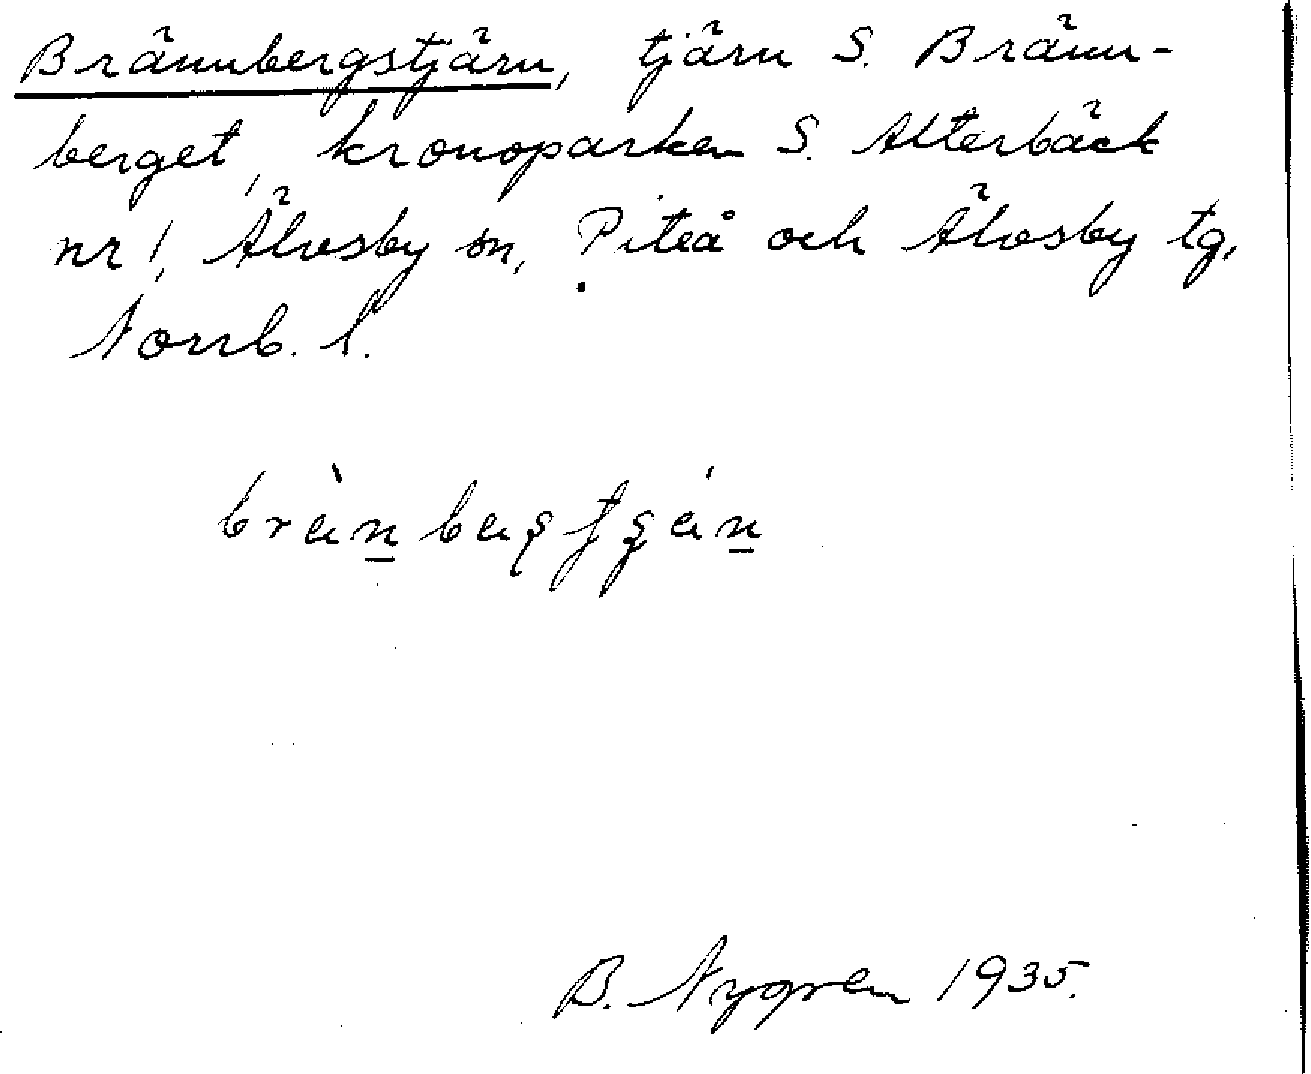 Brännbergstjärn, tjärn S. Bränn-
berget, kronoparken S. Alterbäck
nr 1, Älvsby sn, Piteå och Älvsby tg,
Norrb. l.
B. Nygren 1935.